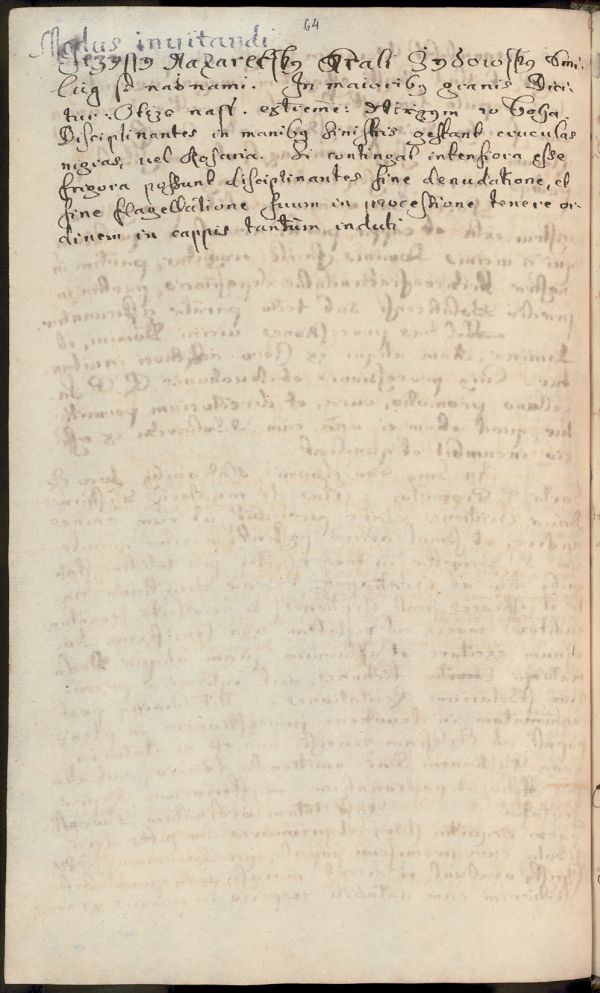 64
Modus invitandi
Jezussy Nazaretsky Krali Zydowsky Smi-
lug se nad nami. In maioribus granis Dici-
tur: Otcze nass. extreme: Wirzym w Boha
Disciplinantes in manibus sinistris gestant cruculas
nigras, vel Rosaria. Si contingat intensiora esse
frigora possunt disciplinantes sine denudatione, et
sine flagellatione suum in processione tenere or-
dinem in cappis tantum induti